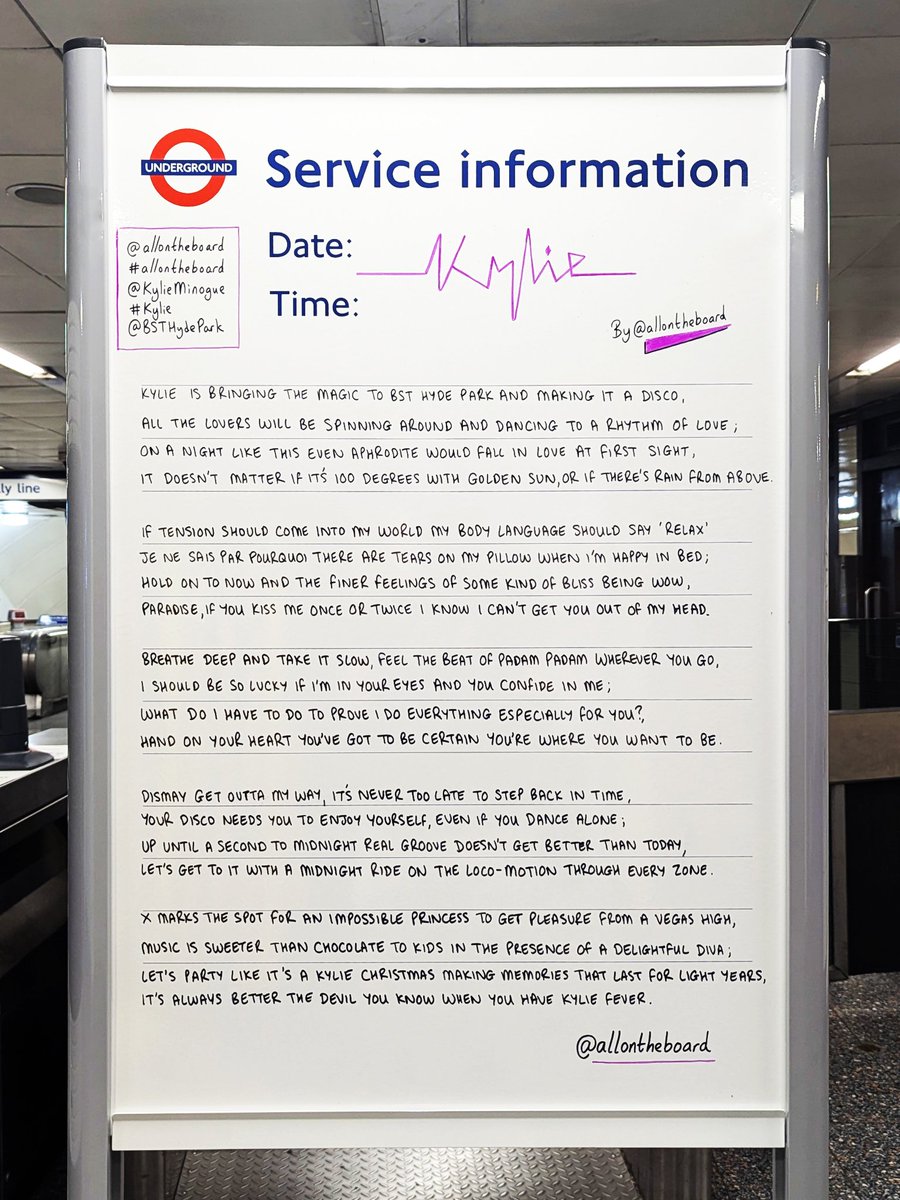 UNDERGROUND
Service information
@allontheboard
#allontheboard
@KylieMinogue
#Kylie
@BSTHydePark
Date: Kylie
Time:
By @allontheboard
KYLIE IS BRINGING THE MAGIC TO BST HYDE PARK AND MAKING IT A DISCO,
ALL THE LOVERS WILL BE SPINNING AROUND AND DANCING TO A RHYTHM OF LOVE;
ON A NIGHT LIKE THIS EVEN APHRODITE WOULD FALL IN LOVE AT FIRST SIGHT,
IT DOESN'T MATTER IF IT'S 100 DEGREES WITH GOLDEN SUN, OR IF THERE'S RAIN FROM ABOVE.
IF TENSION SHOULD COME INTO MY WORLD MY BODY LANGUAGE SHOULD SAY 'RELAX'
JE NE SAIS PAR POURQUOI THERE ARE TEARS ON MY PILLOW WHEN I'M HAPPY IN BED;
HOLD ON TO NOW AND THE FINER FEELINGS OF SOME KIND OF BLISS BEING WOW,
PARADISE, IF YOU KISS ME ONCE OR TWICE I KNOW I CAN'T GET YOU OUT OF MY HEAD.
BREATHE DEEP AND TAKE IT SLOW, FEEL THE BEAT OF PADAM PADAM WHEREVER YOU GO,
I SHOULD BE SO LUCKY IF I'M IN YOUR EYES AND YOU CONFIDE IN ME;
WHAT DO I HAVE TO DO TO PROVE I DO EVERYTHING ESPECIALLY FOR YOU?,
HAND ON YOUR HEART YOU'VE GOT TO BE CERTAIN YOU'RE WHERE YOU WANT TO BE.
DISMAY GET OUTTA MY WAY, IT'S NEVER TOO LATE TO STEP BACK IN TIME,
YOUR DISCO NEEDS YOU TO ENJOY YOURSELF, EVEN IF YOU DANCE ALONE;
UP UNTIL A SECOND TO MIDNIGHT REAL GROOVE DOESN'T GET BETTER THAN TODAY,
LET'S GET TO IT WITH A MIDNIGHT RIDE ON THE LOCO-MOTION THROUGH EVERY ZONE.
X MARKS THE SPOT FOR AN IMPOSSIBLE PRINCESS TO GET PLEASURE FROM A VEGAS HIGH,
MUSIC IS SWEETER THAN CHOCOLATE TO KIDS IN THE PRESENCE OF A DELIGHTFUL DIVA;
LET'S PARTY LIKE IT'S A KYLIE CHRISTMAS MAKING MEMORIES THAT LAST FOR LIGHT YEARS,
IT'S ALWAYS BETTER THE DEVIL YOU KNOW WHEN YOU HAVE KYLIE FEVER.
@allontheboard
ly line